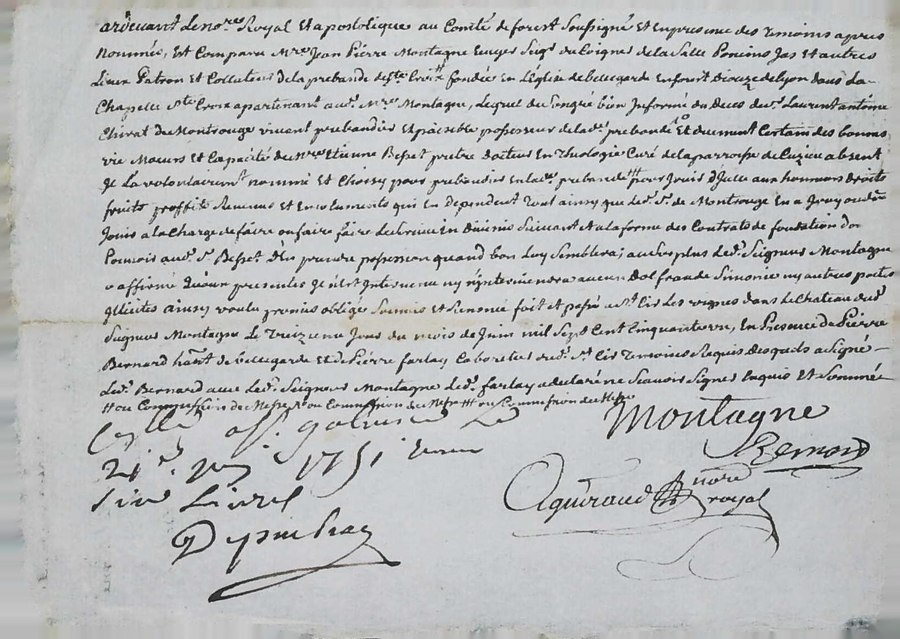 ardevant le no.re Royal Et apostolique au Comté de forest Soussigné et En presence des temoins apres
nommés, Est Comparu M.re Jean Pierre Montagne Ecuyer Seig.r de Poncins Jas Et autres
Lieux Patron Et Collateur de la prebande de S.te Croix fondée En L'Eglise de bellegarde En forest Dioceze de Lyon dans La
Chapelle S.te Croix apartenant aud. M.re Montagne, Lequel de Son gré bien Informé du Deces de S.r Laurent antoine
Chirat de Montrouge vivant prebandier Et paisible possesseur de lad.e prebande Et duement Certain des bonnes
vie Mœurs Et Capacité de M.re Etienne Besset pretre docteur En Theologie Curé de la parroisse de Cuzieu absent
Il La volontairem.t nommé Et Choisy pour prebandier En lad.e prebande pour Jouir d'Icelle aux honneurs droits
fruits proffits Revenus Et Emoluments qui En dependent tout ainsy que led. S.r de Montrouge En a Jouy ou dû
Jouir a la Charge de faire ou faire faire le Service divin Suivant Et a la forme des Contrats de fondation
Pouvoir aud. S.r Besset d'En prendre possession quand bon Luy Semblera; au Surplus Led. Seigneur Montagne
a affirmé qu'aux presentes Il n'Est Intervenu ny n'Interviendra aucun Dol fraude Simonie ny autres pactes
Illicites ainsy voulu promis obligé Soumis Et Renoncé fait et passé a S.t Cir Les vignes dans le Chateau dud.
Seigneur Montagne Le treizieme Jour du mois de Juin mil Sept Cent Cinquante un, En Presence de Pierre
Bernard hab.t de bellegarde Et de Pierre farlay Caboretier dud. S.t Cir Temoins Requis desquels a Signé
Led. Bernard avec Led. Seigneur Montagne Led. farlay a declaré ne Scavoir Signer Enquis Et Sommé
ou Commission de Messe ou Commission de Messe ou Commission de Messe
Montagne
Bernard
21.e 1751
Livres
Depinhac
Aguiraud no.re royal